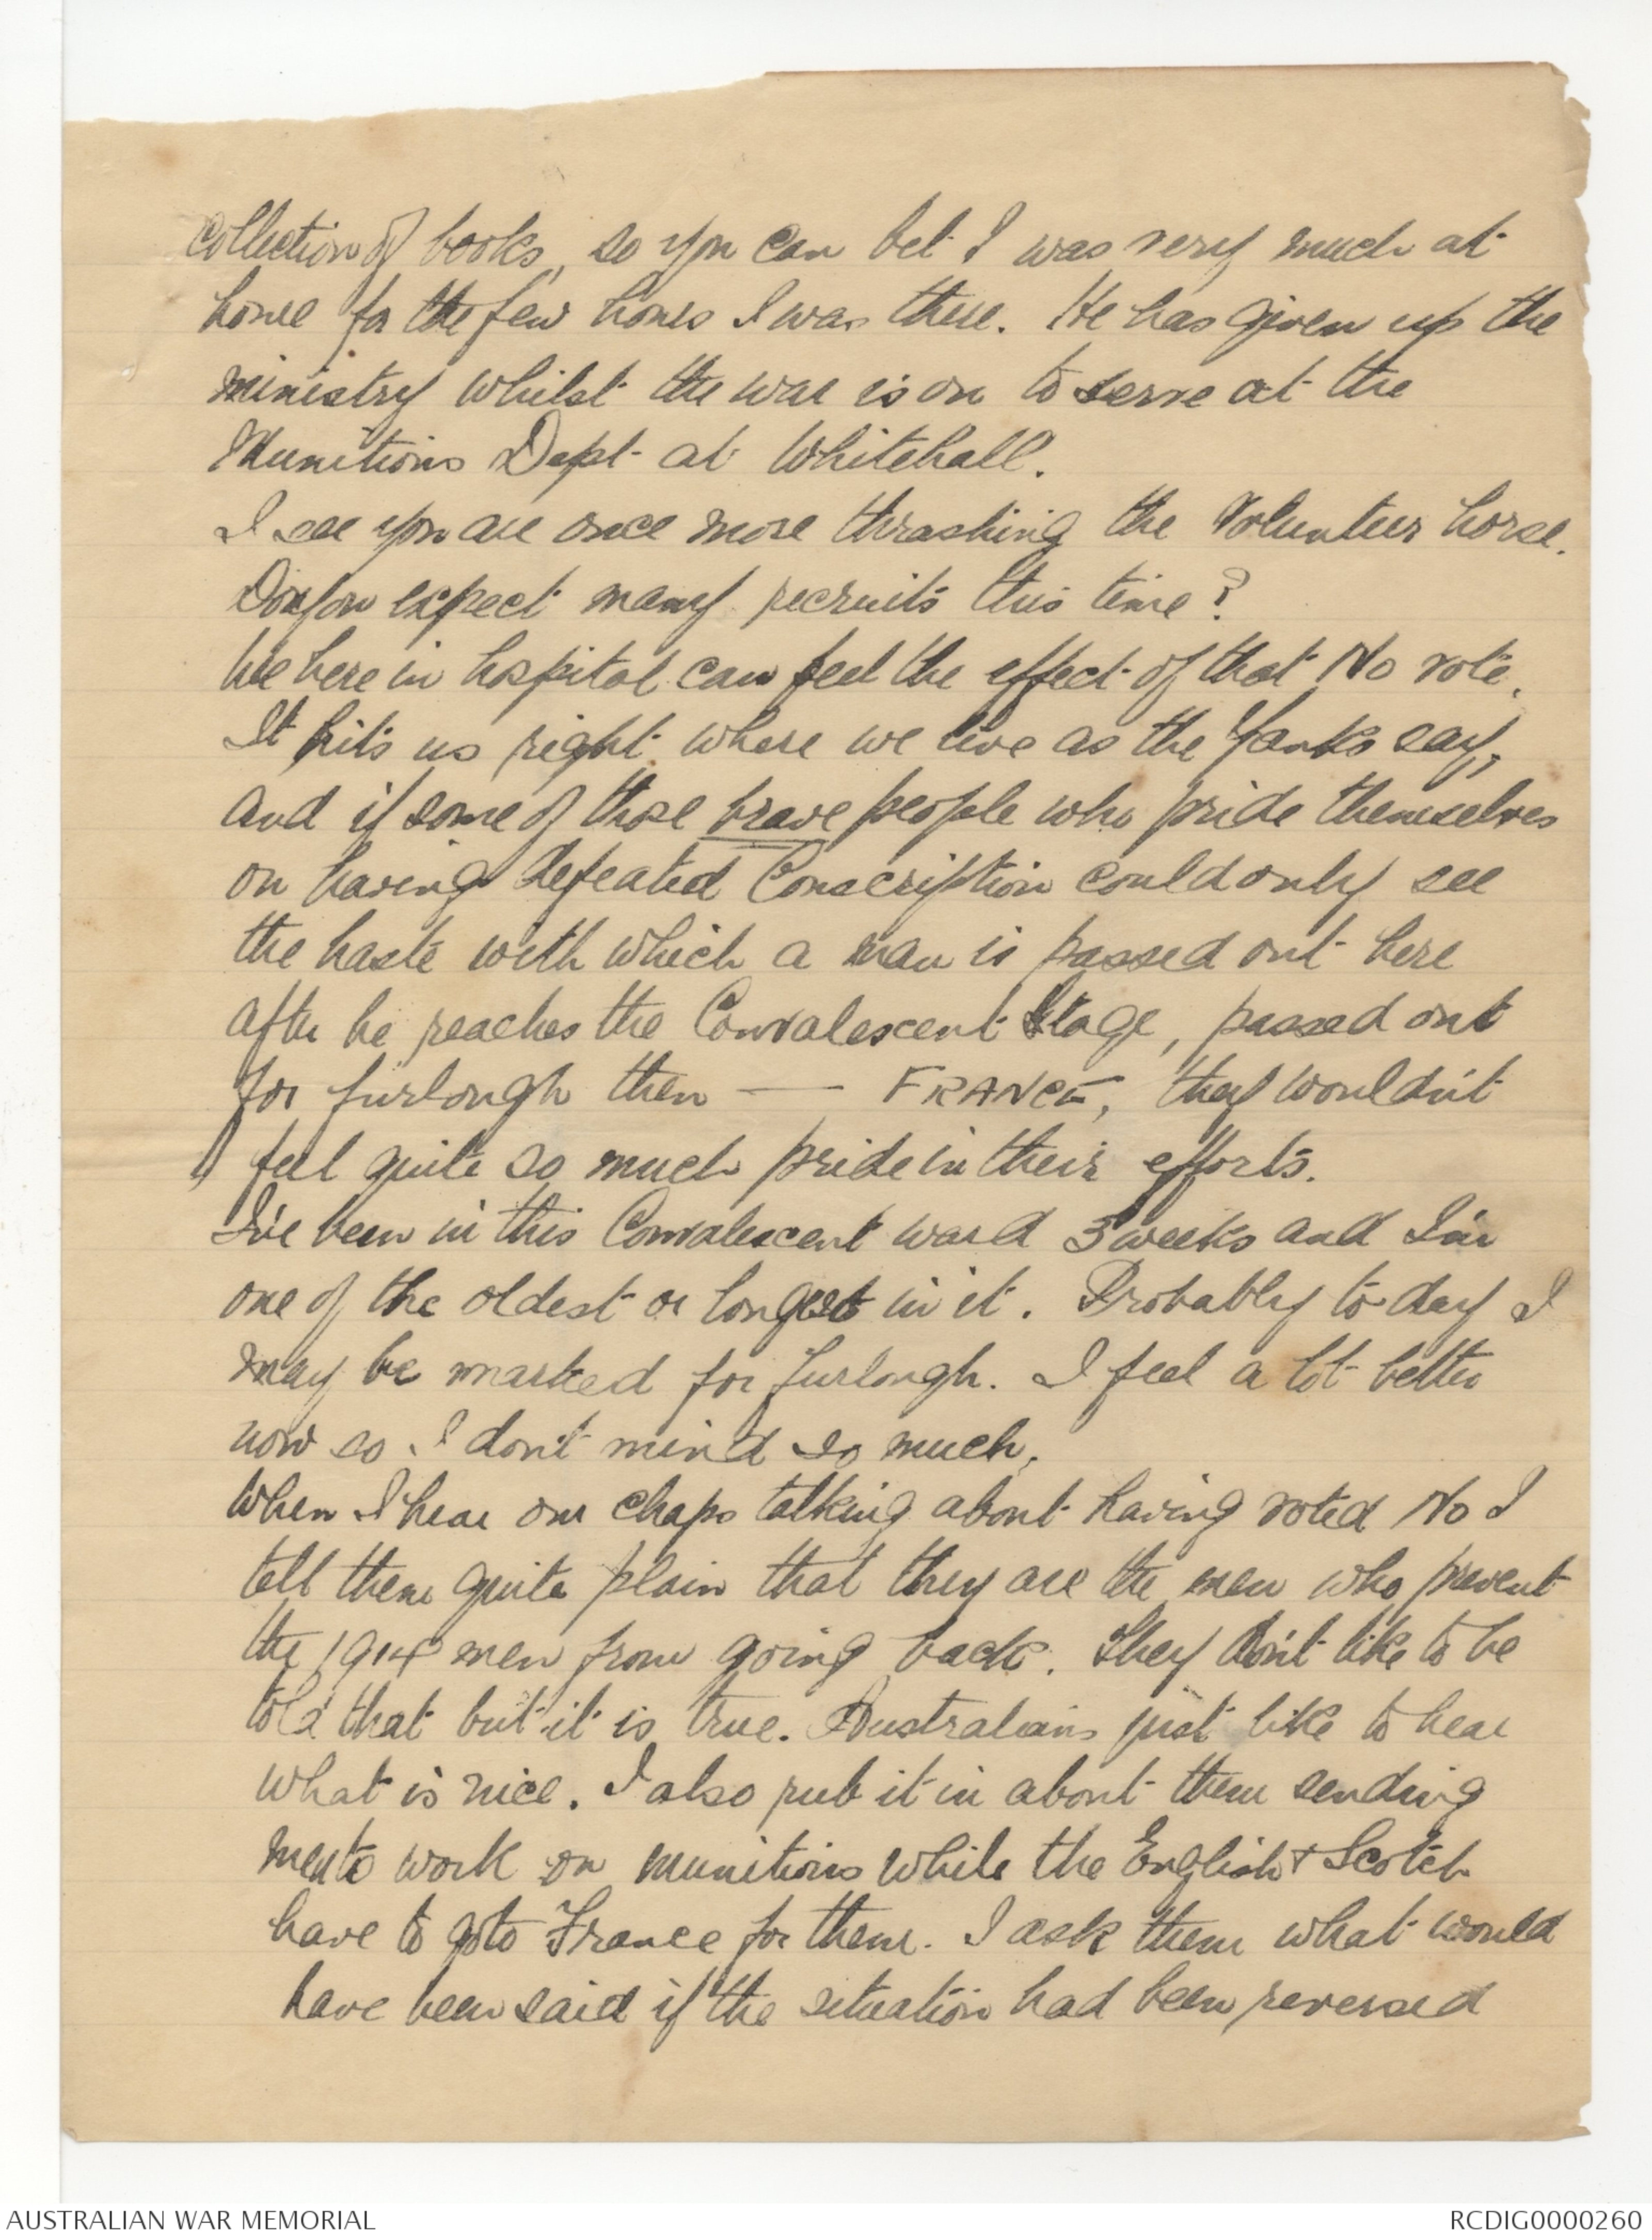 collection of books, so you can bet I was very much at
home for the few hours I was there. He has given up the
ministry whilst the war is on to serve at the
Munitions Dept at Whitehall.
I see you are once more thrashing the Volunteer horse.
Do you expect many recruits this time?
We here in hospital can feel the effect of that No vote.
It hits us right where we live as the Yanks say,
and if some of those brave people who pride themselves
on having defeated Conscription could only see
the haste with which a man is passed out here
after he reaches the Convalescent Stage, passed out
for furlough then — FRANCE, they wouldn't
feel quite so much pride in their efforts.
I've been in this Convalescent ward 3 weeks and I'm
one of the oldest or longest in it. Probably to-day I
may be marked for furlough. I feel a lot better
now so I don't mind so much.
When I hear our chaps talking about having voted No I
tell them quite plain that they are the men who prevent
the 1914 men from going back. They don't like to be
told that but it is true. Australians just like to hear
what is nice. I also rub it in about them sending
men to work on munitions while the English & Scotch
have to go to France for them. I ask them what would
have been said if the situation had been reversed
AUSTRALIAN WAR MEMORIAL
RCDIG0000260